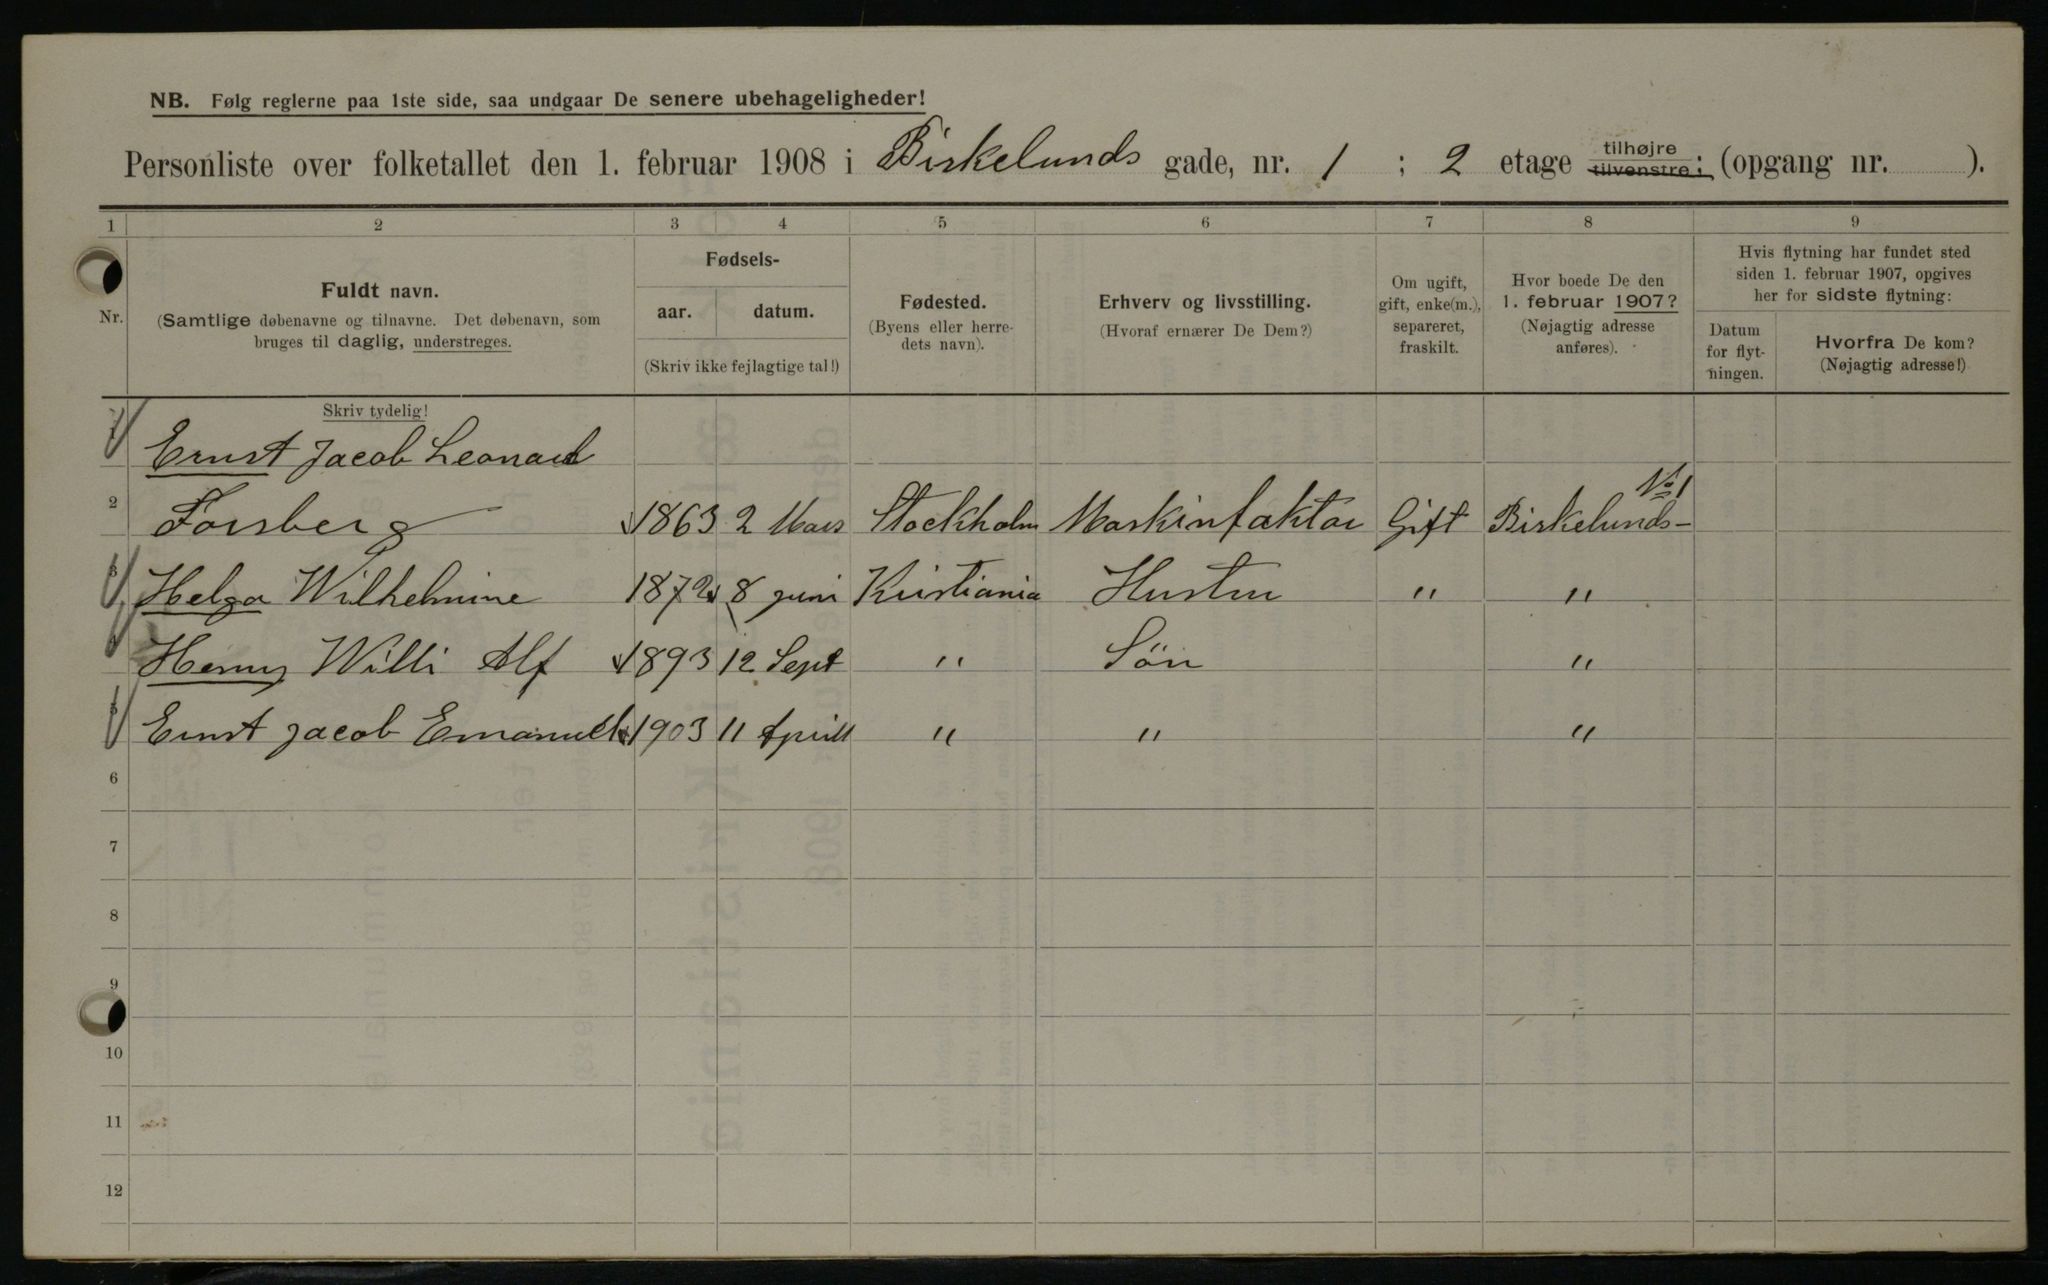 NB. Følg reglerne paa 1ste side, saa undgaar De senere ubehageligheder!
Personliste over folketallet den 1. februar 1908 i Birkelunds gade, nr. 1 ; 2 etage tilhøjre tilvenstre; (opgang nr. ).
1 2 3 4 5 6 7 8 9
Nr.
Fuldt navn.
(Samtlige døbenavne og tilnavne. Det døbenavn, som
bruges til daglig, understreges.
Fødsels-
aar. datum.
(Skriv ikke fejlagtige tal!)
Fødested.
(Byens eller herre-
dets navn).
Erhverv og livsstilling.
(Hvoraf ernærer De Dem?)
Om ugift,
gift, enke(m.),
separeret,
fraskilt.
Hvor boede De den
1. februar 1907?
(Nøjagtig adresse
anføres).
Hvis flytning har fundet sted
siden 1. februar 1907, opgives
her for sidste flytning:
Datum
for flyt-
ningen.
Hvorfra De kom?
(Nøjagtig adresse!)
Skriv tydelig!
1 Ernst Jacob Leonard
No 1
2 Forsberg 1863 2 Mars Stockholm Maskinfaktor Gift Birkelunds-
3 Helga Wilhelmine 1872 8 juni Kristiania Hustru " "
4 Henny Willi Alf 1893 12 Sept " Sön "
5 Ernst Jacob Emanuel 1903 11 April " " "
6
7
8
9
10
11
12